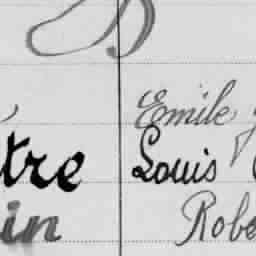 Emile
tre Louis
in Robe